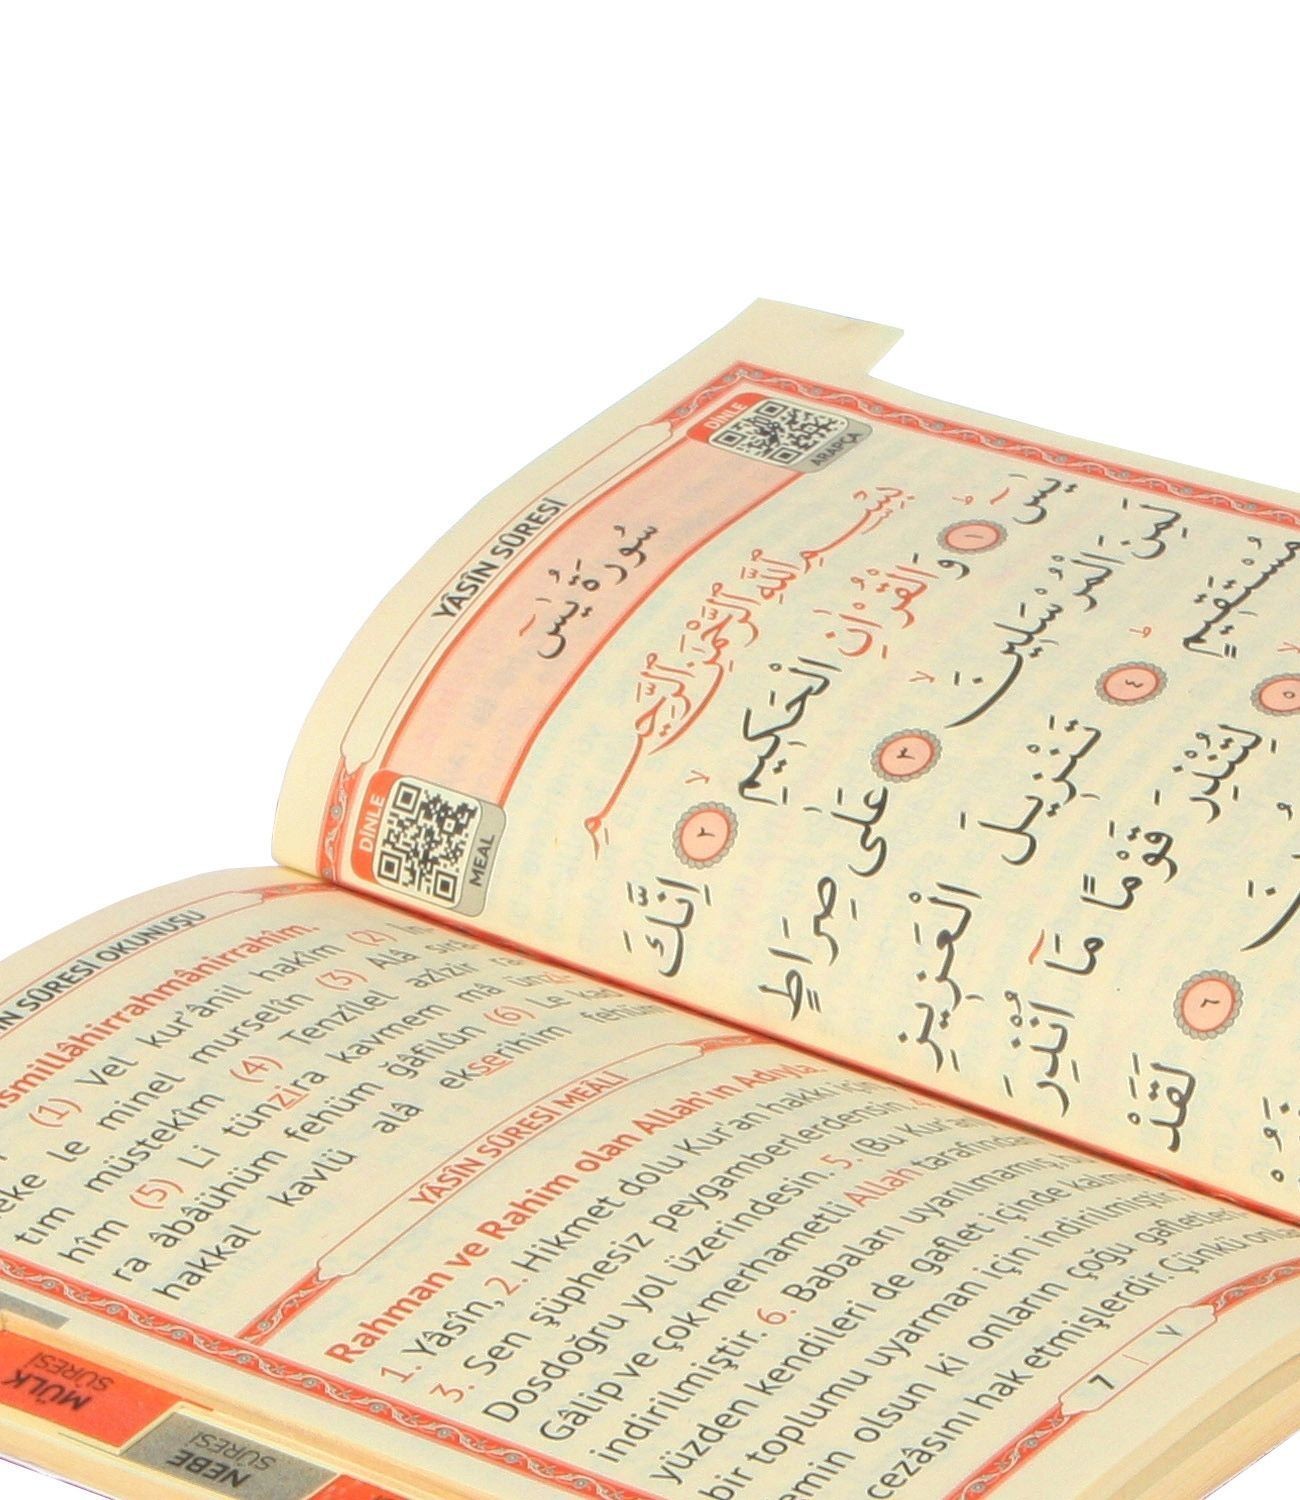 YÂSÎN SÛRESİ
DİNLE
ARAPÇA
سُورَةُ يٰسٓ
DİNLE
MEAL
بِسْمِ اللّٰهِ الرَّحْمٰنِ الرَّحِيمِ
يٰسٓ ۚ ﴿١﴾ وَالْقُرْاٰنِ الْحَكِيمِ ۙ ﴿٢﴾ اِنَّكَ
لَمِنَ الْمُرْسَلِينَ ۙ ﴿٣﴾ عَلٰى صِرَاطٍ
مُسْتَقِيمٍ ۜ ﴿٤﴾ تَنْزِيلَ الْعَزِيزِ
﴿٥﴾ لِتُنْذِرَ قَوْمًا مَٓا اُنْذِرَ
﴿٦﴾ لَقَدْ
SÛRESİ OKUNUŞU
(1) Vel kur'ânil hakîm (2) İn-
le minel murselîn (3) Alâ sırâ-
tım müstekîm (4) Tenzîlel azîzir
hîm (5) Li tünzira kavmem mâ
ra âbâühüm fehüm ğâfilûn (6) Le
hakkal kavlü alâ ekserihim fehüm
YÂSÎN SÛRESİ MEÂLİ
Rahman ve Rahim olan Allah'ın Adıyla.
1. Yâsîn, 2. Hikmet dolu Kur'an hakkı için
3. Sen şüphesiz peygamberlerdensin.
Dosdoğru yol üzerindesin. 5. (Bu Kur'an
Gâlip ve çok merhametli Allah tarafından
indirilmiştir. 6. Babaları uyarılmamış,
yüzden kendileri de gaflet içinde
bir toplumu uyarman için indirilmiştir.
emin olsun ki onların çoğu
cezâsını hak etmişlerdir. Çünkü
7 | ٧
MÜLK
SÛRESİ
NEBE
SÛRESİ